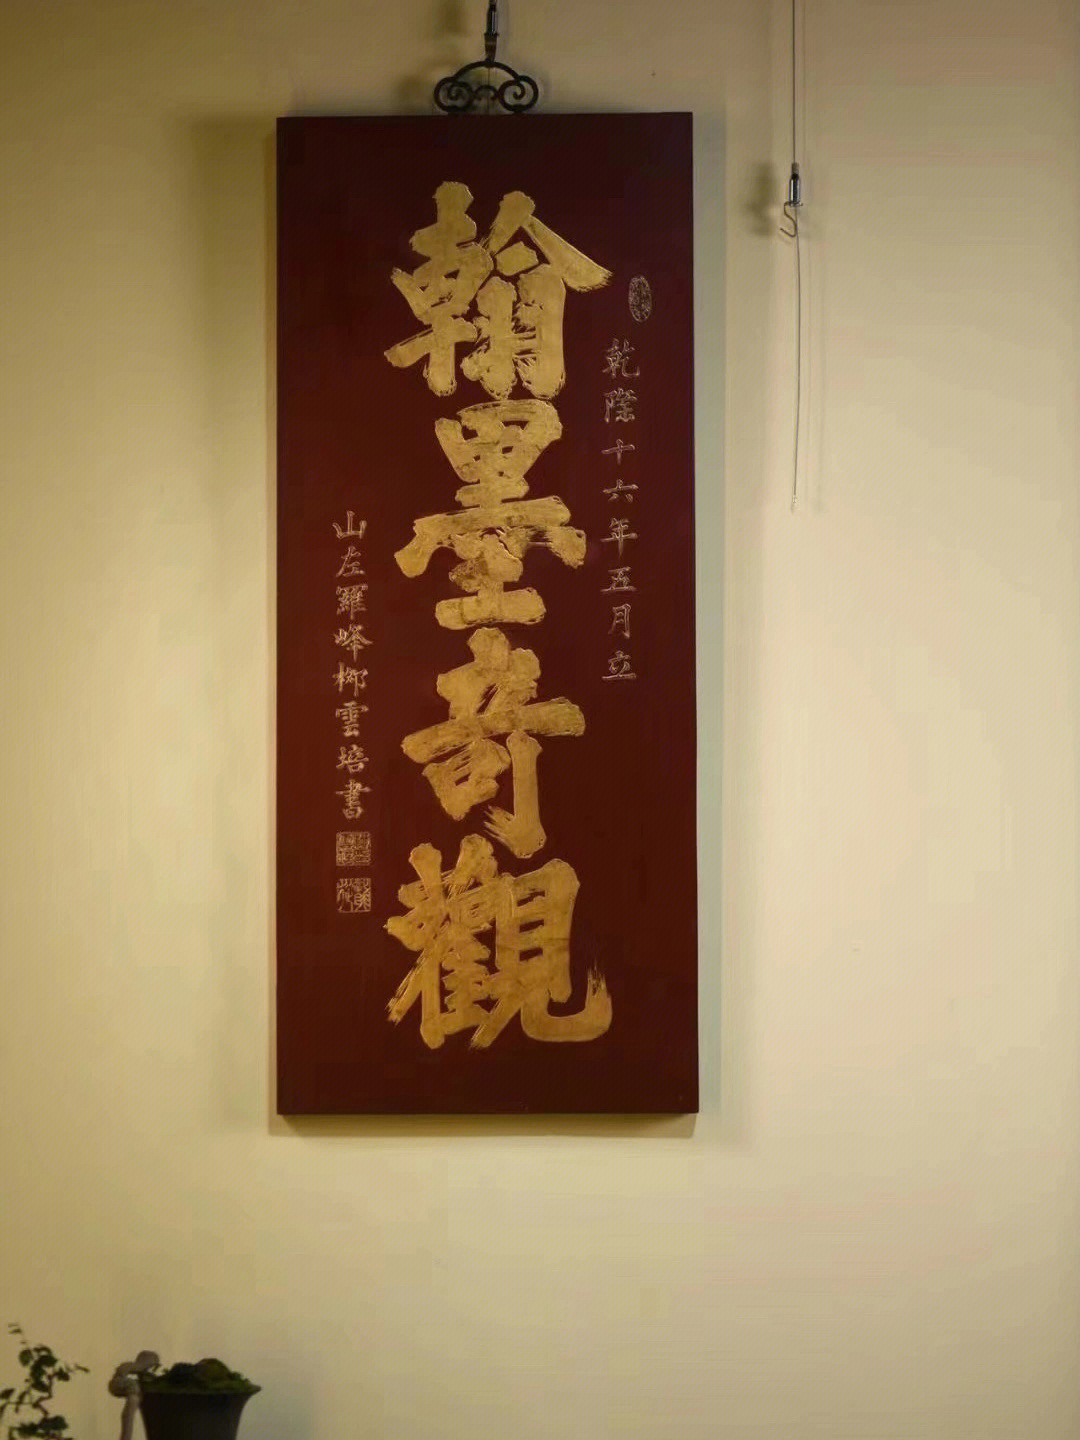 乾隆十六年五月立
翰墨奇觀
山左羅峰柳雲培書